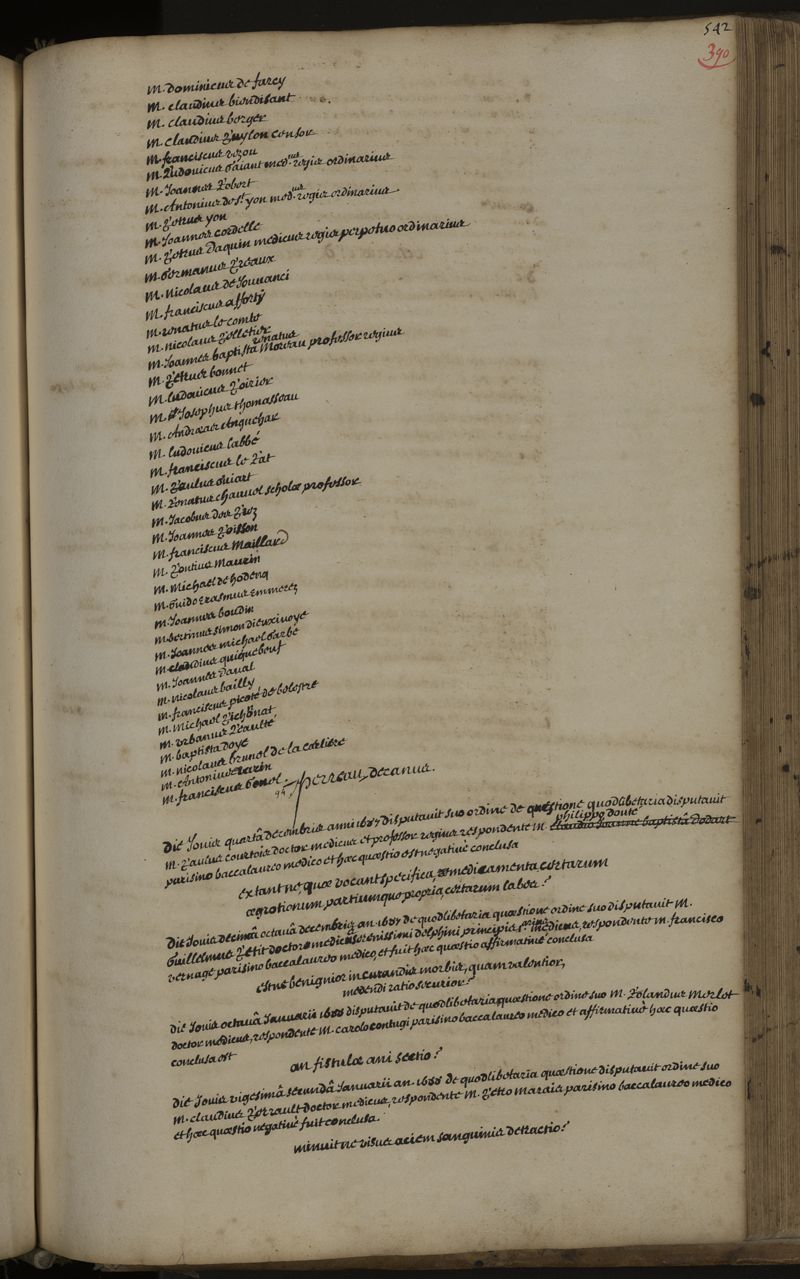 542
390
M. Dominicus de farcy
M. claudius
M. claudius berger
M. claudius Quyton censor
M. franciscus vezou
M. Ludovicus Gaiant med.us regis ordinarius
M. Joannes Robert
M. Antonius de St yon med.us regis ordinarius.
M. Petrus yon
M. Joannes cordelle
M. Petrus Daquin medicus regis perpetuo ordinarius
M. Germanus Preaux
M. Nicolaus de Jouuanci
M. franciscus afforty
M. renatus le comte
M. nicolaus
M. Joannes baptista renatus Moreau professor regius
M. Petrus bonnet
M. ludovicus Poirier
M. Josephus thomasseau
M. Andreas Enguehar
M. ludovicus labbé
M. franciscus le Rat
M. Paulus Guiart
M. Renatus chauuel scholæ professor
M. Jacobus des Prez
M. Joannes Poisson
M. franciscus Maillard
M. Pontius Maurin
M. Michael de hodencq
M. Guido Erasmus Emmerez
M. Joannes boudin
M. bertinus simon dieuxiuoye
M. Joannes michael Garbe
M. claudius quiquebeuf
M. Joannes Daual
M. nicolaus bailly
M. franciscus picoté de belestre
M. Michael
M. urbanus Leaulté
M. baptista Doye
M. nicolaus brunel de la carliere
M. Antonius
M. franciscus
perreau, decanus.
Die Jouis quarta decembris anni 1687 disputauit suo ordine de quæstione quodlibetaria disputauit
M. Paulus courtois doctor medicus et professor regius respondente M. claudio Joanne baptista Dodart philippo douté
parisino baccalaureo medico et hæc quæstio est negatiue conclusa
extant ne quæ vocant specifica, medicamenta, certarum
ægrotionum, partiumque propria, certarum labes?
Die Jouis decimâ octauâ decembris an. 1687 de quodlibetaria quæstione ordine suo disputauit M.
Guillelmus Petit doctore medicus serenissimi delphini principis primo medicus, respondente M. francisco
vernage parisino baccalaureo medico, et fuit hæc quæstio affirmatiuè conclusa
estne benignior in curandis morbis, quam valentior,
medendi ratio securior?
die Jouis octauâ Januarii 1688 disputauit de quodlibetaria quæstione ordine suo M. Rolandus Merlet
doctor medicus, respondente M. carolo contugi parisino baccalaureo medico et affirmatiuè hæc quæstio
conclusa est
an fistulæ ani sectio?
die Jouis vigesimâ secundâ Januarii an. 1688 de quodlibetaria quæstione disputauit ordine suo
M. claudius Perrault doctor medicus, respondente M. Petro Marais parisino baccalaureo medico
et hæc quæstio negatiuè fuit conclusa.
minuit ne visus aciem sanguinis detractio?